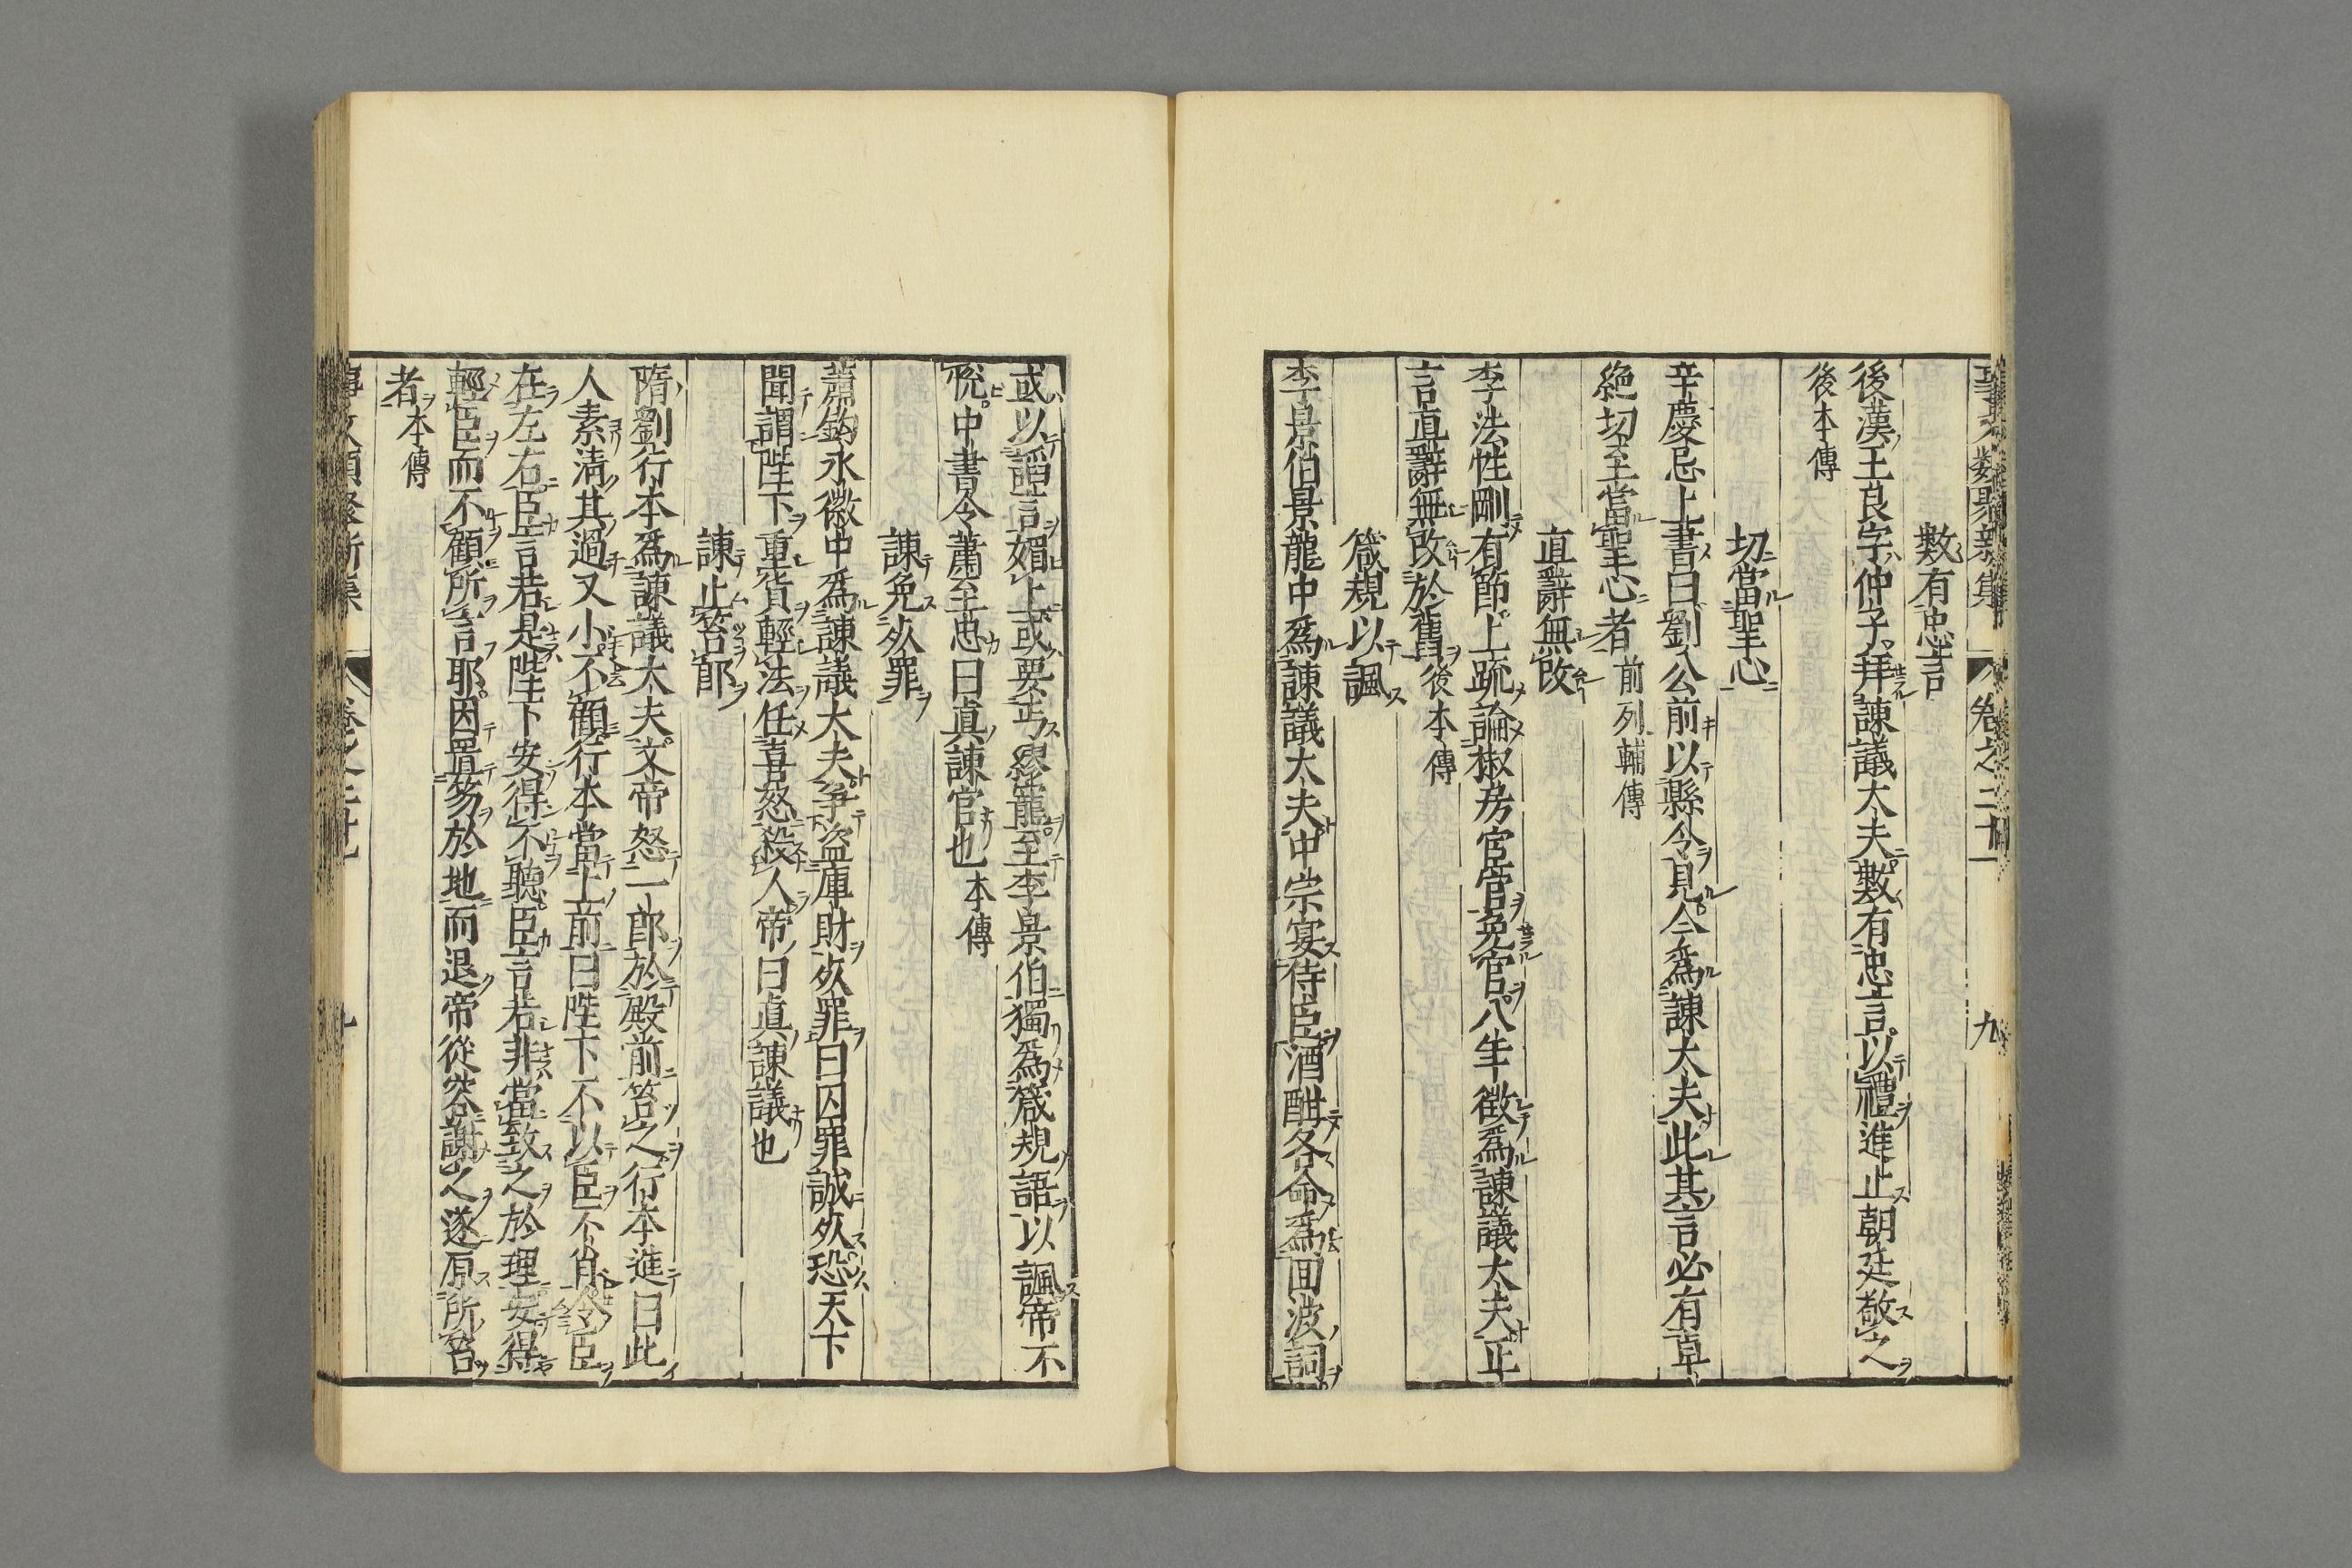 數有忠言
後漢王良字仲子拜諫議大夫數有忠言以禮進止朝廷敬之
後本傳
切當聖心
辛慶忌上書曰劉公前以縣令見今爲諫大夫此其言必有卓
絶切至當聖心者前列輔傳
直辭無改
李法性剛有節上疏論椒房宦官免官八年徵爲諫議大夫正
言直辭無改於舊後本傳
箴規以諷
李景伯景龍中爲諫議大夫中宗宴侍臣酒酣各命爲回波詞
或以謟言媚上或要丐縁寵至李景伯獨爲箴規語以諷帝不
悅中書令蕭至忠曰真諫官也本傳
諫免死罪
蕭鈞永徽中爲諫議大夫爭盜庫財死罪曰囚罪誠死恐天下
聞謂陛下重貨輕法任喜怒殺人帝曰真諫議也
諫止笞郎
隋劉行本爲諫議大夫文帝怒一郎於殿前笞之行本進曰此
人素清其過又小不顧行本當上前曰陛下不以臣不肖令臣
在左右臣言若是陛下安得不聽臣言若非當致之於理安得
輕臣而不顧所言耶因置笏於地而退帝從容謝之遂原所笞
者本傳